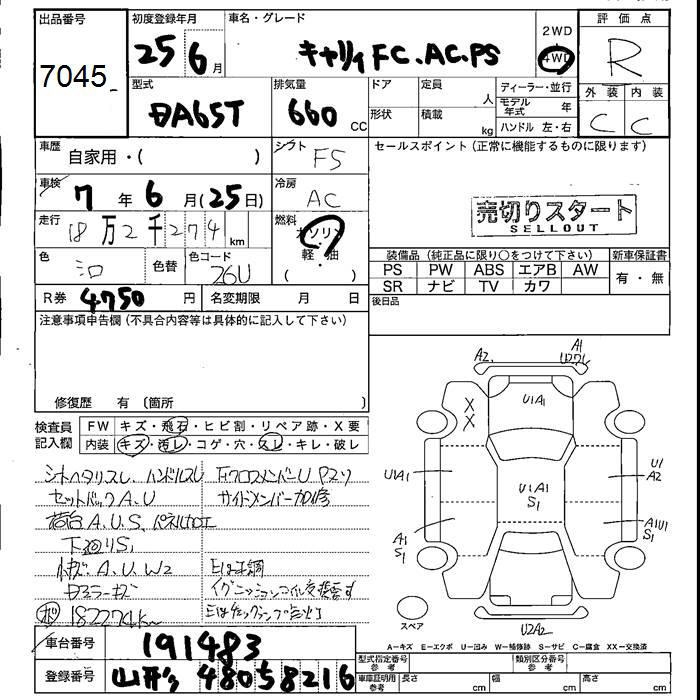 出品番号
7045
初度登録年月
25 6月
車名・グレード
キャリィ FC.AC.PS
2WD
4WD
評価点
R
外装 内装
C C
型式
DA65T
排気量
660 CC
ドア
形状
定員 人
積載 kg
ディーラー・並行
モデル年式 年
ハンドル 左・右
車歴
自家用・( )
シフト
F5
セールスポイント(正常に機能するものに限ります)
売切りスタート
SELLOUT
車検
7年 6月(25日)
冷房
AC
走行
18万2千274km
燃料
ガソリン
軽・油
( )
色
シロ
色替
色コード
26U
装備品(純正品に限り○をつけて下さい)
新車保証書
PS PW ABS エアB AW
有・無
SR ナビ TV カワ
R券 4750 円
名変期限 月 日
後日品
注意事項申告欄(不具合内容等は具体的に記入して下さい)
修復歴 有(箇所
検査員記入欄
FW キズ・飛石・ヒビ割・リペア跡・X要
内装 キズ・汚レ・コゲ・穴・スレ・キレ・破レ
シートヘタリスレ、ハンドルスレ
セットバックA.U
荷台A.U.S、パネル加工
下廻りS1
A.U.W2
182274km
FクロスメンバーU
サイドメンバー加修
イグニッションコイル交換要す
A2
A1
U1A1
X
X
U1A1
U1A1
S1
U1
A2
A1
S1
A1U1
S1
U2A2
スペア
A=キズ E=エクボ U=凹み W=補修跡 S=サビ C=腐食 XX=交換済
車台番号
191483
登録番号
山形 480 58216
型式指定番号
参考
類別区分番号
参考
車庫証明用
参考
長さ cm
幅 cm
高さ cm